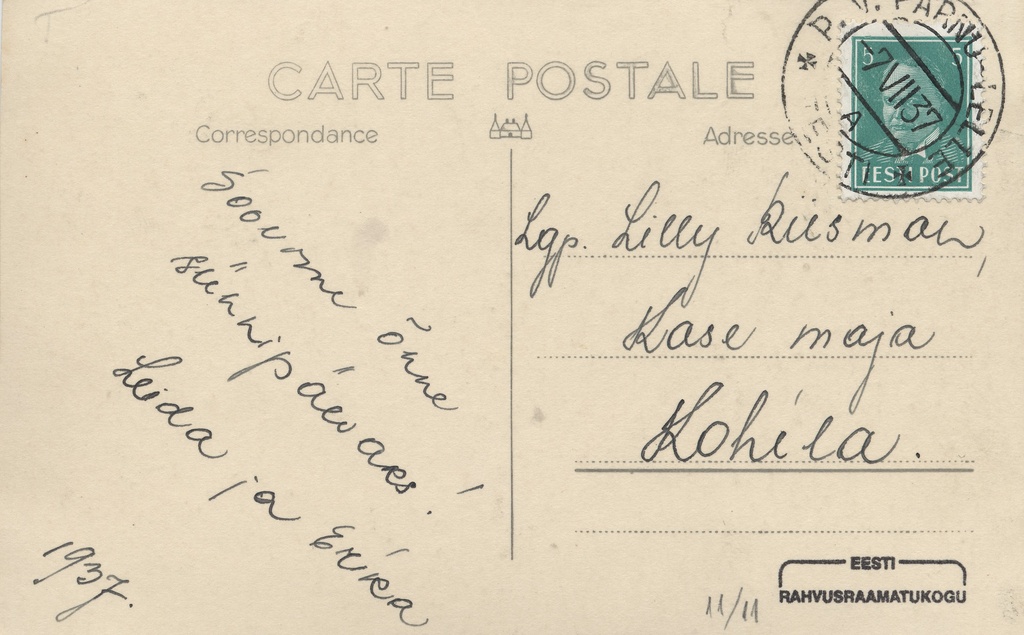 CARTE POSTALE
Correspondance
Adresse
Soovime õnne
sünnipäevaks!
Leida ja Erika
1937.
P. V. PÄRNU-LELLE
7 VII 37
A
EESTI
5 5
EESTI POST
Lgp. Lilly Riisman,
Kase maja
Kohila.
11/11
EESTI
RAHVUSRAAMATUKOGU